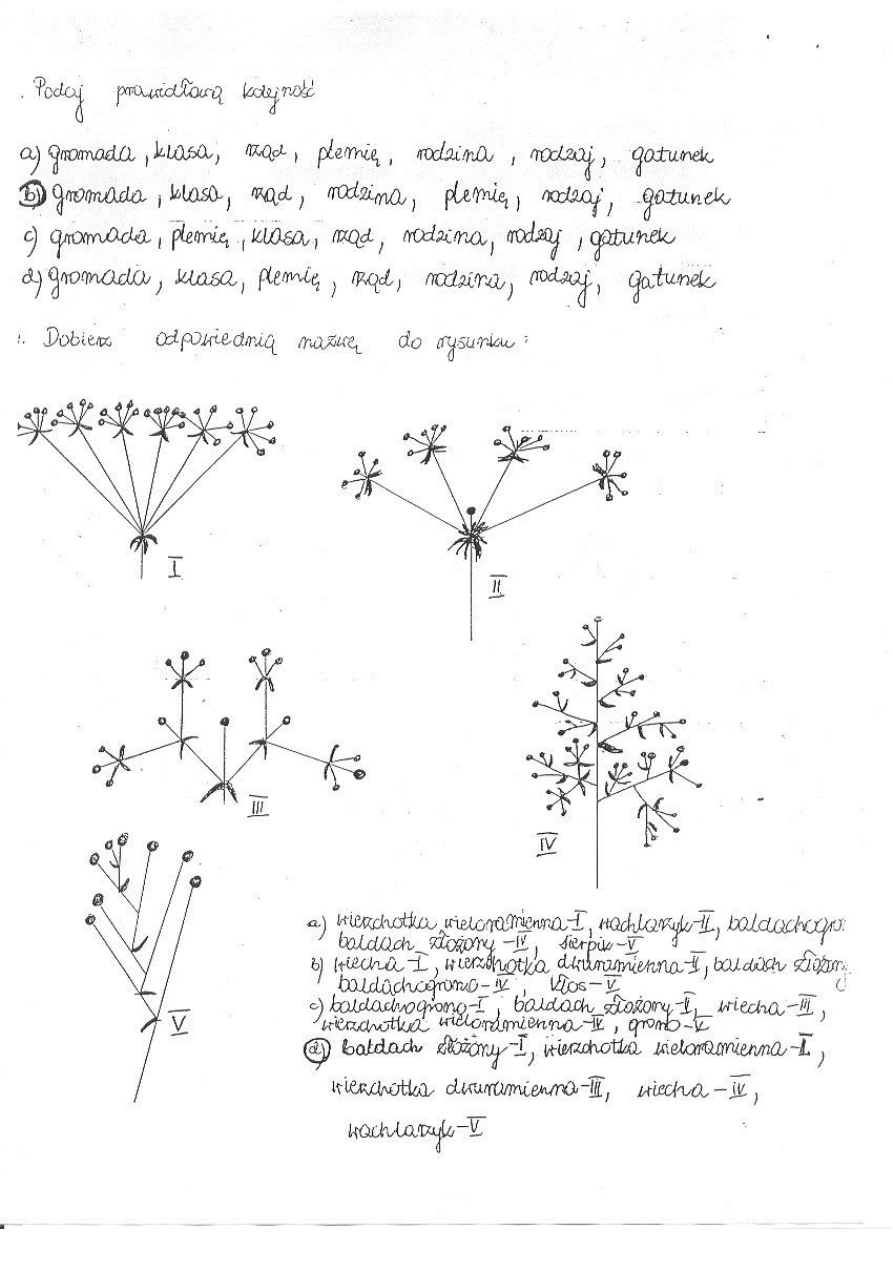 . Podaj prawidłową kolejność
a) gromada, klasa, rząd, plemię, rodzina, rodzaj, gatunek
b) gromada, klasa, rząd, rodzina, plemię, rodzaj, gatunek
c) gromada, plemię, klasa, rząd, rodzina, rodzaj, gatunek
d) gromada, klasa, plemię, rząd, rodzina, rodzaj, gatunek
. Dobierz odpowiednią nazwę do rysunku:
I
II
III
IV
V
a) wierzchotka wieloramienna-I, wachlarzyk-II, baldachogro
baldach złożony-IV, sierpik-V
b) wiecha-I, wierzchotka dwuramienna-II, baldach złożon
baldachogrono-IV, kłos-V
c) baldachogrono-I, baldach złożony-II, wiecha-III,
wierzchotka wieloramienna-IV, grono-V
d) baldach złożony-I, wierzchotka wieloramienna-II,
wierzchotka dwuramienna-III, wiecha-IV,
wachlarzyk-V